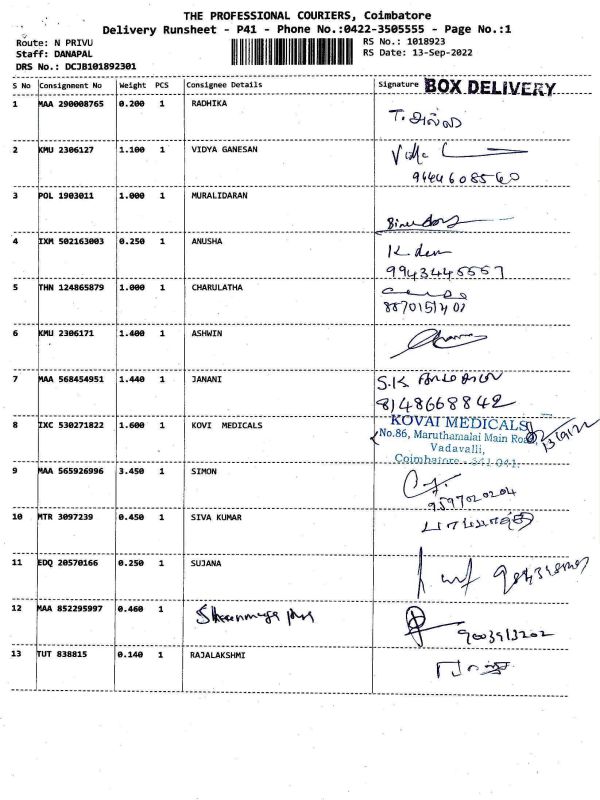 THE PROFESSIONAL COURIERS, Coimbatore
Delivery Runsheet - P41 - Phone No.:0422-3505555 - Page No.:1
Route: N PRIVU RS No.: 1018923
Staff: DANAPAL RS Date: 13-Sep-2022
DRS No.: DCJB101892301
S No Consignment No Weight PCS Consignee Details Signature BOX DELIVERY
1 MAA 290008765 0.200 1 RADHIKA
2 KMU 2306127 1.100 1 VIDYA GANESAN
9444608560
3 POL 1903011 1.000 1 MURALIDARAN
4 IXM 502163003 0.250 1 ANUSHA
9943445557
5 THN 124865879 1.000 1 CHARULATHA
6 KMU 2306171 1.400 1 ASHWIN
7 MAA 568454951 1.440 1 JANANI S.K
8148668842
8 IXC 530271822 1.600 1 KOVI MEDICALS KOVAI MEDICALS
No.86, Maruthamalai Main Road,
Vadavalli,
Coimbatore - 641 041.
9 MAA 565926996 3.450 1 SIMON
9597020204
10 MTR 3097239 0.450 1 SIVA KUMAR
11 EDQ 20570166 0.250 1 SUJANA
12 MAA 852295997 0.460 1
9003913202
13 TUT 838815 0.140 1 RAJALAKSHMI